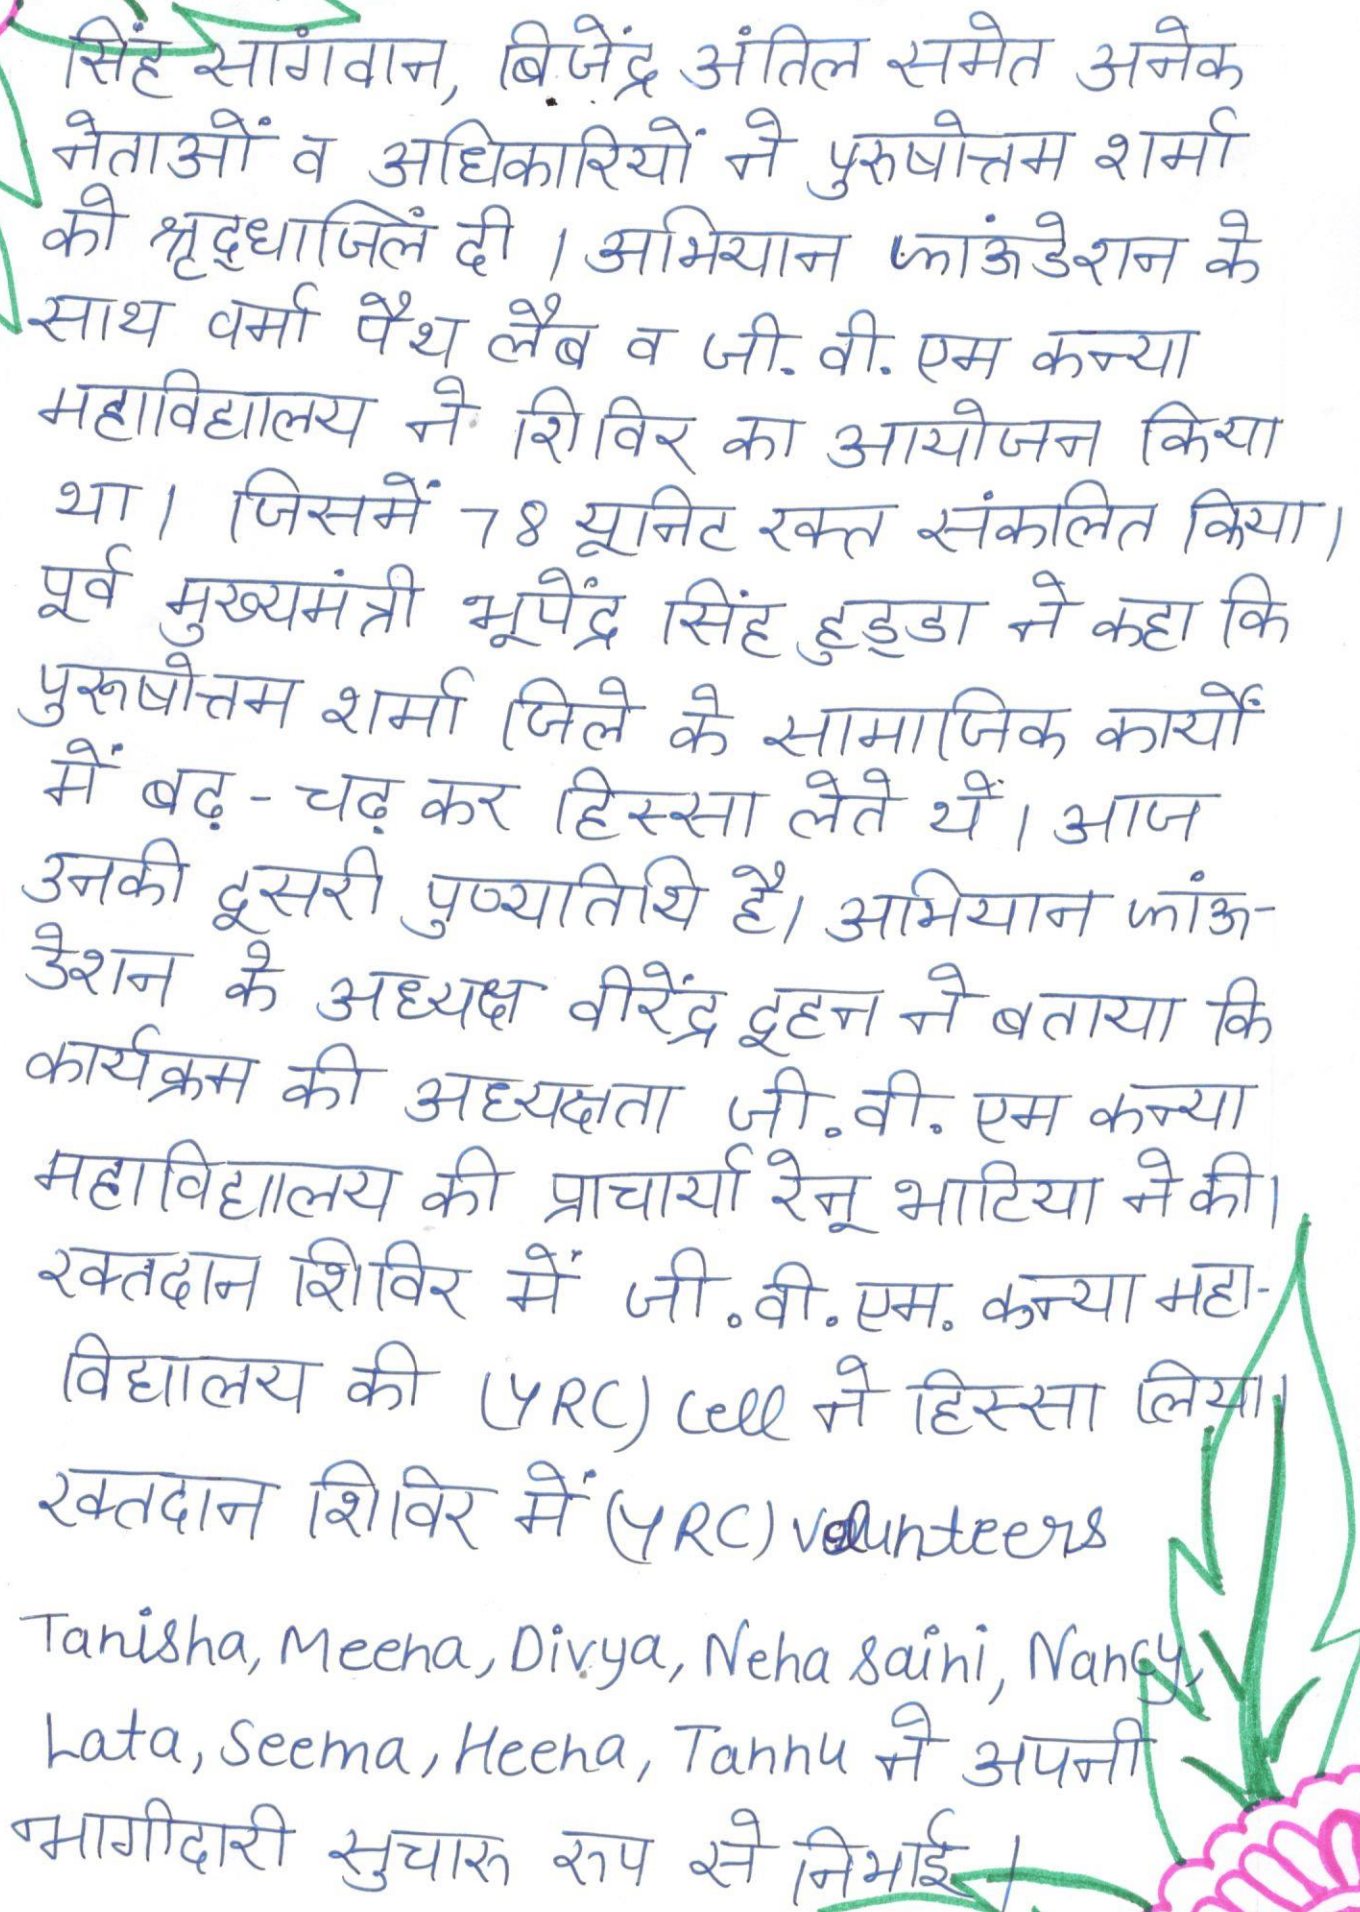 सिंह सांगवान, बिजेंद्र अंतिल समेत अनेक
नेताओं व अधिकारियों ने पुरुषोत्तम शर्मा
को श्रृद्धाजिलं दी । अभियान फ्लांऊडेशन के
साथ वर्मा पैथ लैब व जी. वी. एम कन्या
महाविद्यालय ने शिविर का आयोजन किया
था। जिसमें 78 यूनिट रक्त संकलित किया।
पूर्व मुख्यमंत्री भूपेंद्र सिंह हुड्डा ने कहा कि
पुरूषोत्तम शर्मा जिले के सामाजिक कार्यों
में बढ़ - चढ़ कर हिस्सा लेते थें। आज
उनकी दूसरी पुण्यातिथि है। अभियान फ्लांऊ-
डेशन के अध्यक्ष वीरेंद्र दूहन ने बताया कि
कार्यक्रम की अध्यक्षता जी.वी. एम कन्या
महाविद्यालय की प्राचार्या रेनू भाटिया ने की।
रक्तदान शिविर में जी.वी.एम. कन्या महा-
विद्यालय की (YRC) Cell ने हिस्सा लिया।
रक्तदान शिविर में (YRC) Volunteers
Tanisha, Meena, Divya, Neha Saini, Nancy,
Lata, Seema, Heena, Tannu ने अपनी
भागीदारी सुचारू रूप से निभाई ।